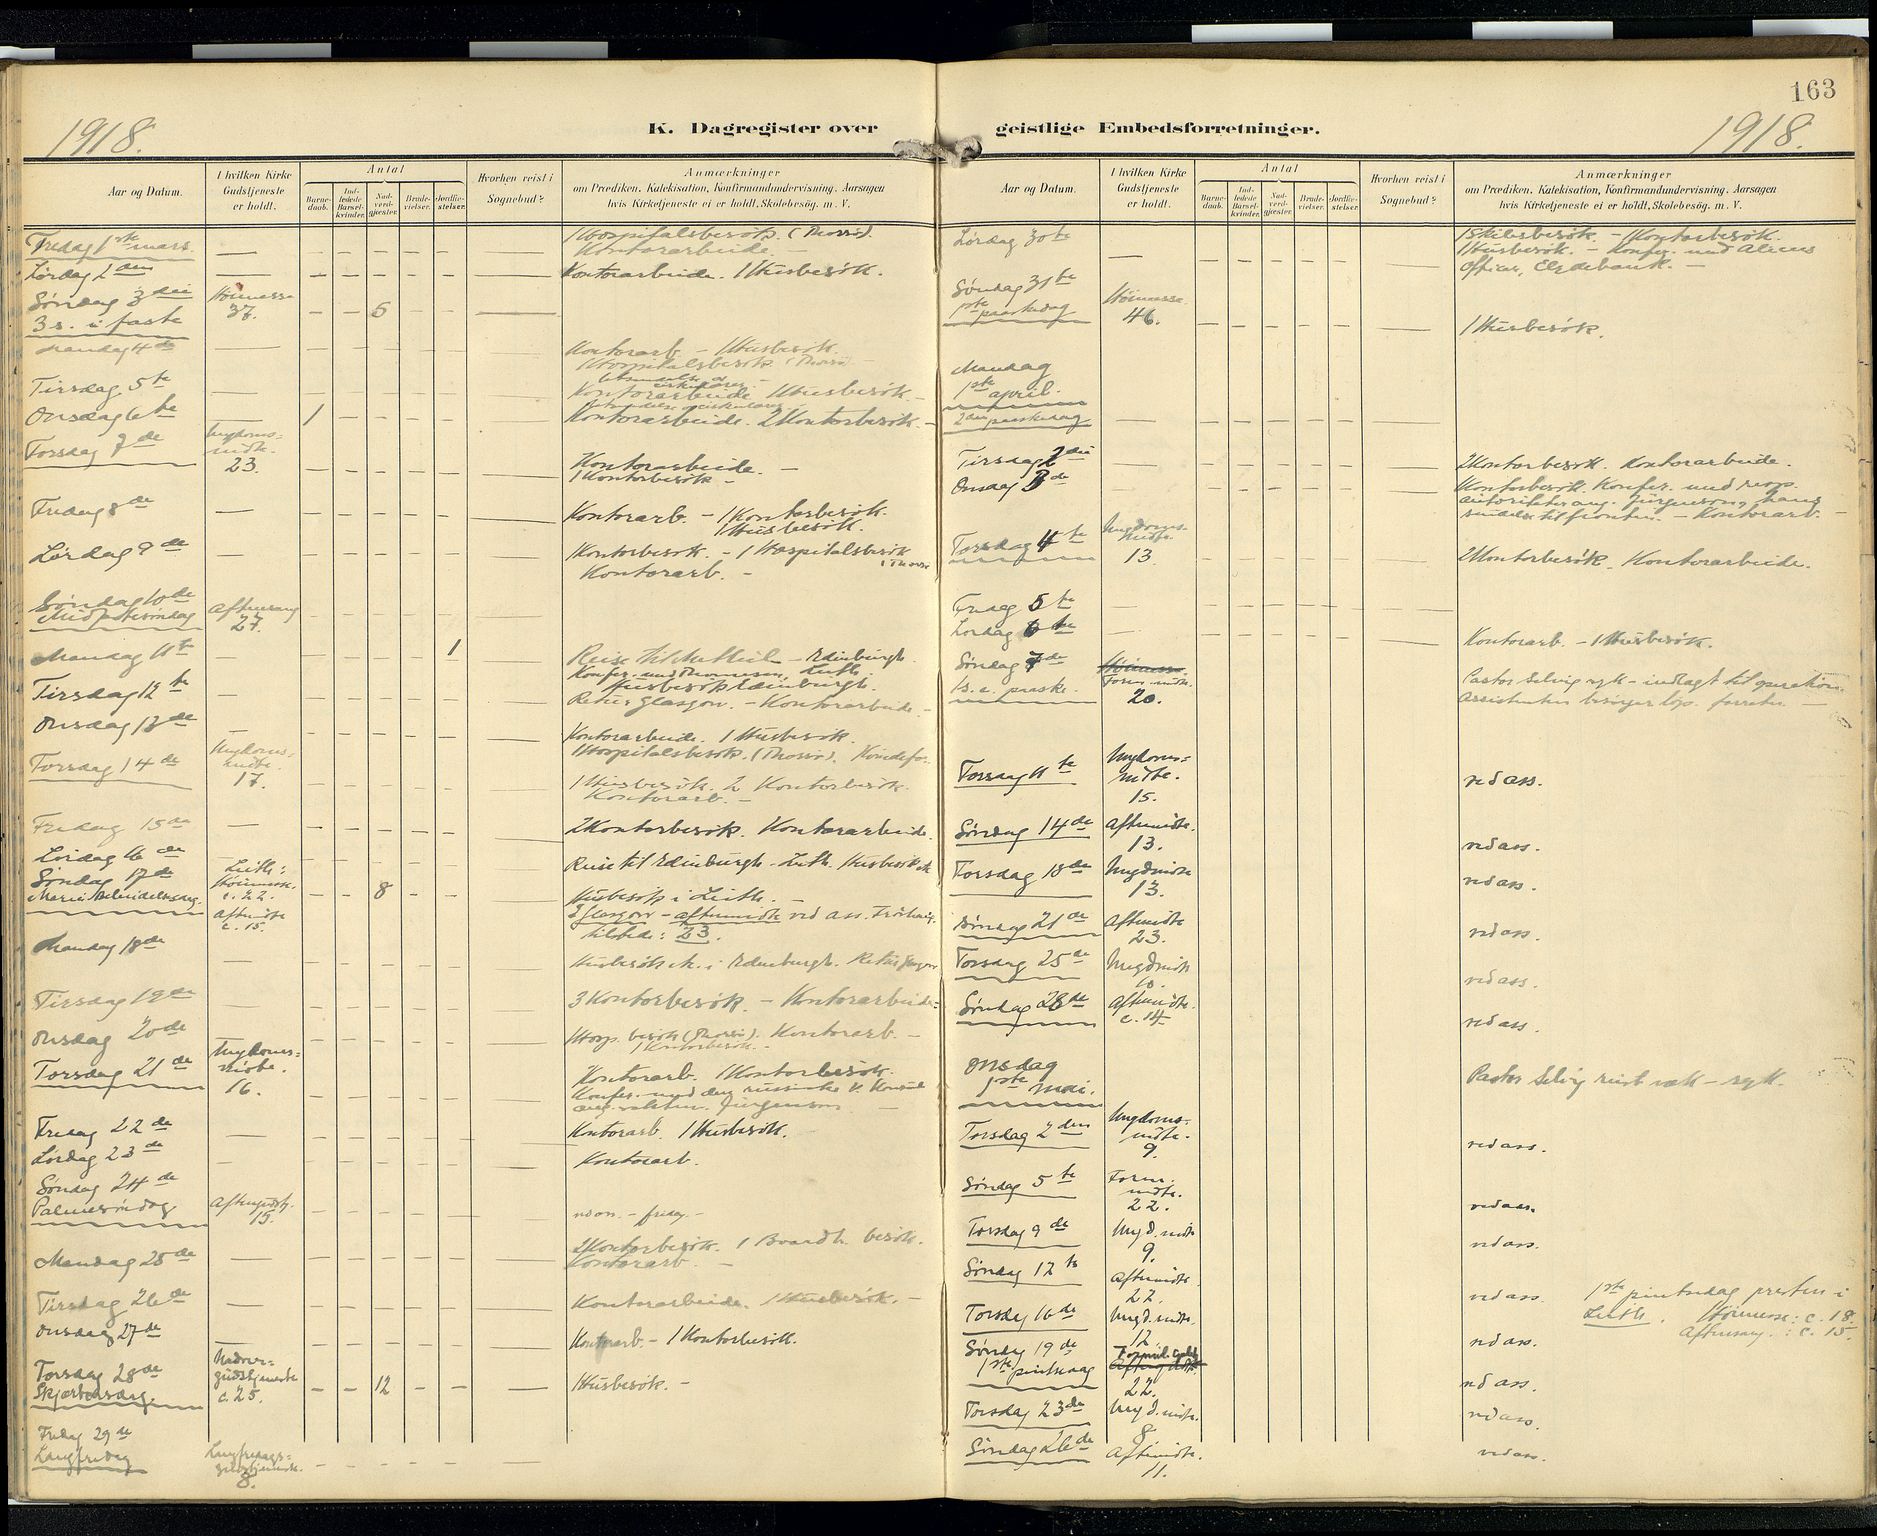 163
1918.
K. Dagregister over
geistlige Embedsforretninger.
1918.
Aar og Datum.
I hvilken Kirke
Gudstjeneste
er holdt.
Antal
Barne-
daab.
Ind-
ledede
Barsel-
kvinder.
Nad-
verd-
gjester.
Brude-
vielser.
Jordfæ-
stelser.
Hvorhen reist i
Sognebud?
Anmærkninger
om Prædiken, Katekisation, Konfirmandundervisning, Aarsagen
hvis Kirketjeneste ei er holdt, Skolebesøg. m. V.
Fredag 1ste mars
1 Hospitalsbesøk. (Morris).
Kontorarbeide.
Lørdag 2den
Kontorarbeide. 1 Husbesøk.
Søndag 3die
Høimesse
3 s. i faste
37.
5
Mandag 4de
Kontorarb. – 1 Husbesøk.
1 Hospitalsbesøk
Tirsdag 5te
Kontorarbeide 1 Husbesøk –
Onsdag 6te
1
Kontorarbeide. 2 Kontorbesøk. –
Torsdag 7de
Ungdoms-
møte.
23.
Kontorarbeide. –
1 Kontorbesøk –
Fredag 8de
Kontorarb. – 1 Kontorbesøk.
1 Husbesøk.
Lørdag 9de
1 Kontorbesøk. – 1 Hospitalsbesøk
Kontorarb. –
Søndag 10de
Midfastesøndag
Aftensang
27.
Mandag 11te
1
Edinburgh.
Tirsdag 12te
Husbesøk Edinburgh.
Retur Glasgow. – Kontorarbeide –
Onsdag 13de
Kontorarbeide. 1 Husbesøk.
1 Hospitalsbesøk.
Torsdag 14de
Ungdoms-
møte.
17.
1 Husbesøk. 2 Kontorbesøk.
Kontorarb. –
Fredag 15de
2 Kontorbesøk. Kontorarbeide.
Lørdag 16de
Reise til Edinburgh – Leith. Husbesøk
Søndag 17de
Leith:
Høimesse.
c. 22.
8
Husbesøk i Leith. –
Aftmøte
c. 15.
I Glasgow – aftenmøte ved ass.
tilstede: 23.
Mandag 18de
Husbesøk i Edinburgh. Retur Glasgow
Tirsdag 19de
3 Kontorbesøk – Kontorarbeide
Onsdag 20de
Hosp. besøk Kontorarb. –
1 Kontorbesøk. –
Torsdag 21de
Ungdoms-
møte.
16.
Kontorarb. 1 Kontorbesøk.
Konfer. med den russiske v. Konsul
Jürgenson –
Fredag 22de
Kontorarb. 1 Husbesøk. –
Lørdag 23de
Kontorarb.
Søndag 24de
Palmesøndag
Aftenmøte.
15.
Mandag 25de
2 Kontorbesøk. 1 besøk.
Kontorarb. –
Tirsdag 26de
Kontorarbeide. 1 Husbesøk. –
Onsdag 27de
Kontorarb – 1 Kontorbesøk.
Torsdag 28de
Skjærtorsdag.
Nadver-
gudstjeneste
c. 25.
12
1 Husbesøk. –
Fredag 29de
Langfredag
Langfredags-
gudstjeneste.
8.
Aar og Datum.
I hvilken Kirke
Gudstjeneste
er holdt.
Antal
Barne-
daab.
Ind-
ledede
Barsel-
kvinder.
Nad-
verd-
gjester.
Brude-
vielser.
Jordfæ-
stelser.
Hvorhen reist i
Sognebud?
Anmærkninger
om Prædiken, Katekisation, Konfirmandundervisning, Aarsagen
hvis Kirketjeneste ei er holdt, Skolebesøg. m. V.
Lørdag 30te
1 Skibsbesøk. – 1 Kontorbesøk.
1 Husbesøk. – Konfer. med Aliens
Officer, Clydebank. –
Søndag 31te
1ste paaskedag
Høimesse.
46.
1 Husbesøk.
Mandag
1ste april.
2den paaskedag
Tirsdag 2die
2 Kontorbesøk. Kontorarbeide.
Onsdag 3de
1 Kontorbesøk. Konfer. med resp.
autoriteter ang. Jürgenson, hans
sendelse til fronten. – Kontorarb. –
Torsdag 4te
Ungdoms-
møte
13.
2 Kontorbesøk. Kontorarbeide.
Fredag 5te
Lørdag 6te
Kontorarb. – 1 Husbesøk.
Søndag 7de
1 s. e. paaske.
Høimesse.
Form. møte.
20.
Pastor Selvig syk – indlagt til operation
Assistenten besørger løp. forretn. –
Torsdag 11te
Ungdoms-
møte.
15.
ved ass.
Søndag 14de
Aftmøte.
13.
ved ass.
Torsdag 18de
Ungdmøte
13.
ved ass.
Søndag 21de
Aftmøte
23.
ved ass.
Torsdag 25de
Ungdmøte
10.
ved ass.
Søndag 28de
Aftmøte.
c. 14.
ved ass.
Onsdag
1ste mai.
Pastor Selvig reist væk – syk.
Torsdag 2den
Ungdoms-
møte.
9.
ved ass.
Søndag 5te
Form.
møte.
22.
ved ass.
Torsdag 9de
Ungd. møte
9.
ved ass.
Søndag 12te
Aftmøte
22.
ved ass.
1ste pinsedag presten i
Leith. Høimesse: c. 18.
Aftensang: c. 15.
Torsdag 16de
Ungd. møte.
12
ved ass.
Søndag 19de
1ste pinsedag
22.
ved ass.
Torsdag 23de
Ungd. møte.
8
ved ass.
Søndag 26de
Aftmøte.
11.
ved ass.